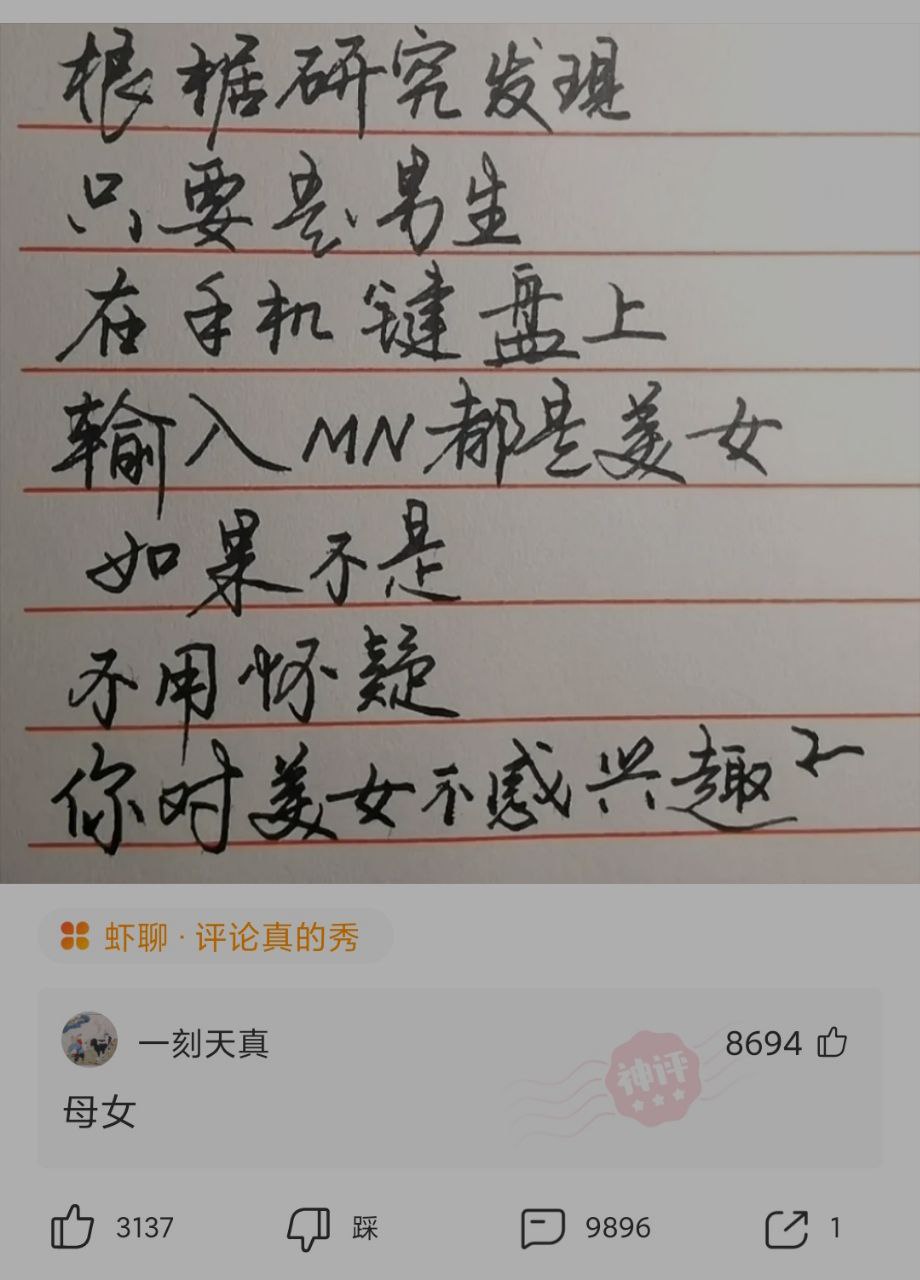 根据研究发现
只要是男生
在手机键盘上
输入MN都是美女
如果不是
不用怀疑
你对美女不感兴趣
虾聊 · 评论真的秀
一刻天真
8694
神评
母女
3137
踩
9896
1